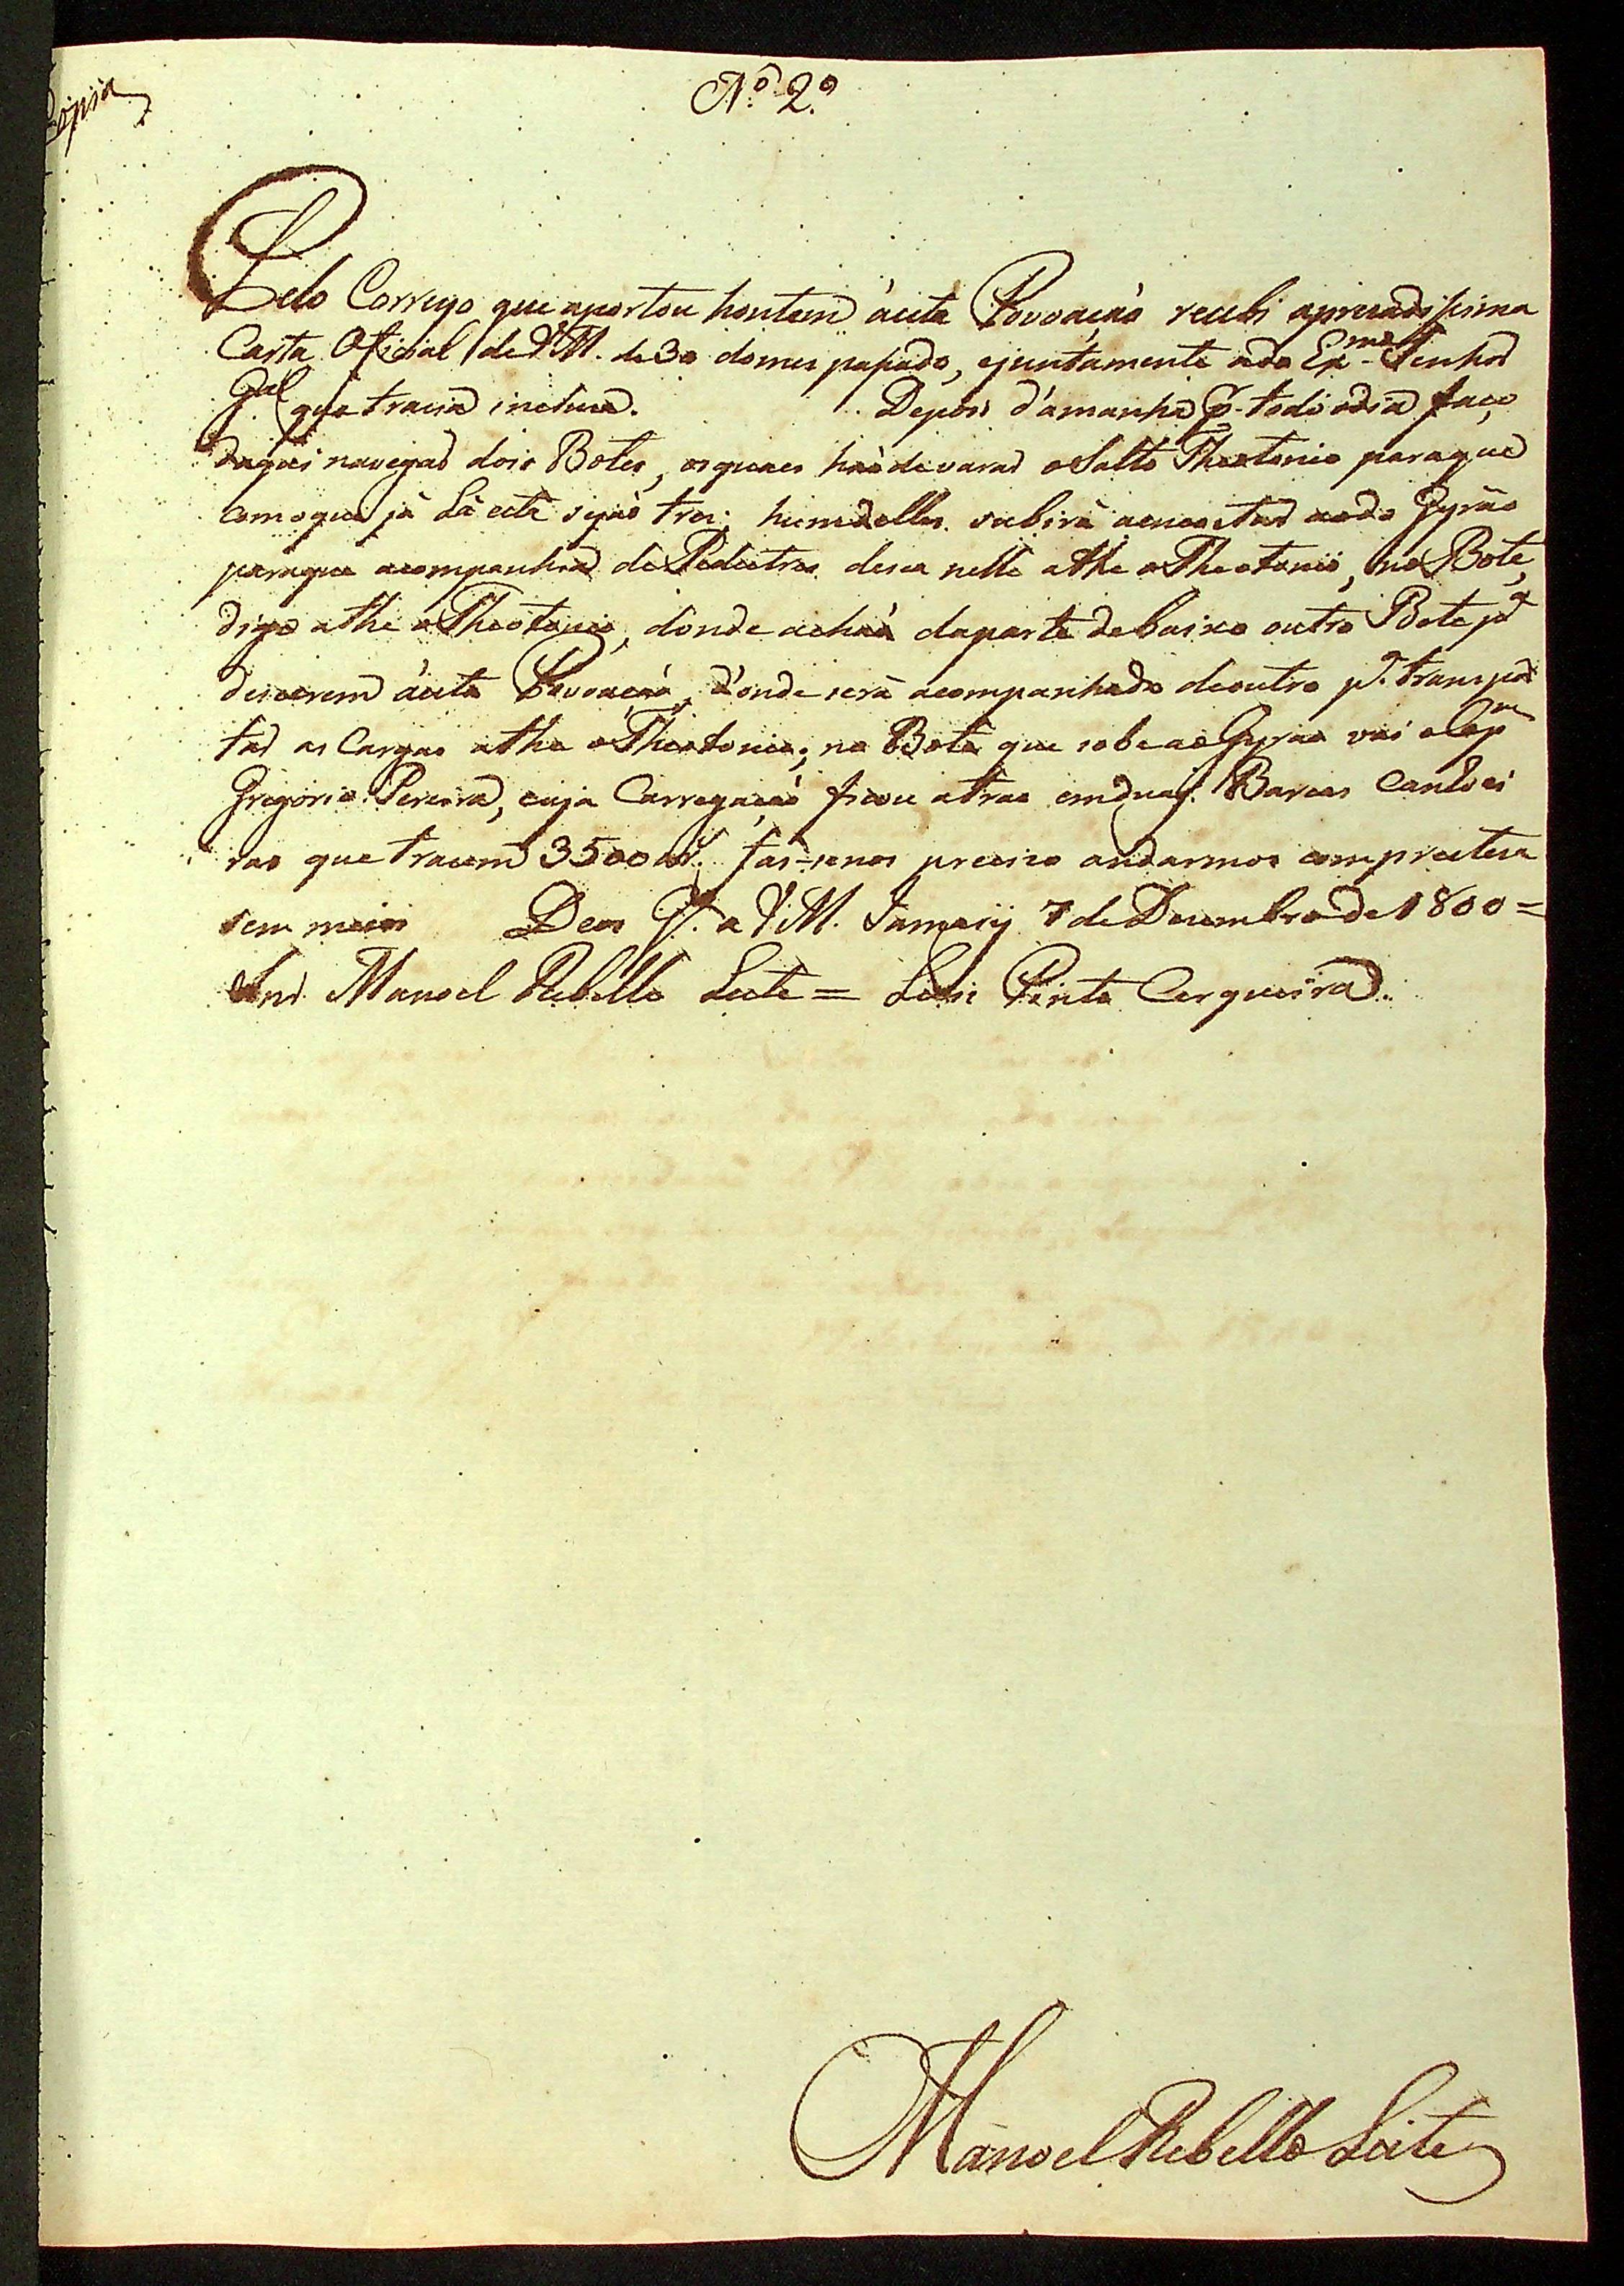 Copia
N.º 2.º
Pelo Correyo que aportou hontem áesta Povoação recebi apreciadissima
Carta Oficial de V.M. de 30 domes passado, ejuntamente ado Ex.mo Senhor
Gal que tracia inclusa. Depois d'amanha p. todo odia faço
daqui navegar dois Botes, osquaes hãodevarar oSalto Theotonio paraque
comoque já Lá está sejaõ tres; humdelles subirá aencostar aodo Gyráo
paraque acompanhad dePedestres desca nelle athe oTheotonio, no Bote,
digo athe oTheotonio, donde achará daparte debaixo outro Bote p.a
descerem áesta Povoação, d'onde será acompanhado deoutro p.a transpor
tar as Cargas athe oTheotonio; no Bote que sobe aoGyrao vai oCap.m
Gregorio Pereira, cuja Carregação ficou atras emduas Barcas Candoei
ras que tracem 3500 @. fas-senos preciso andarmos compresteza
sem maior Deos G. a V.M. Jamary 7 de Decembro de 1800 =
Snr. Manoel Rebello Leite = Luis Pinto Cerqueira.
Manoel Rebello Leite